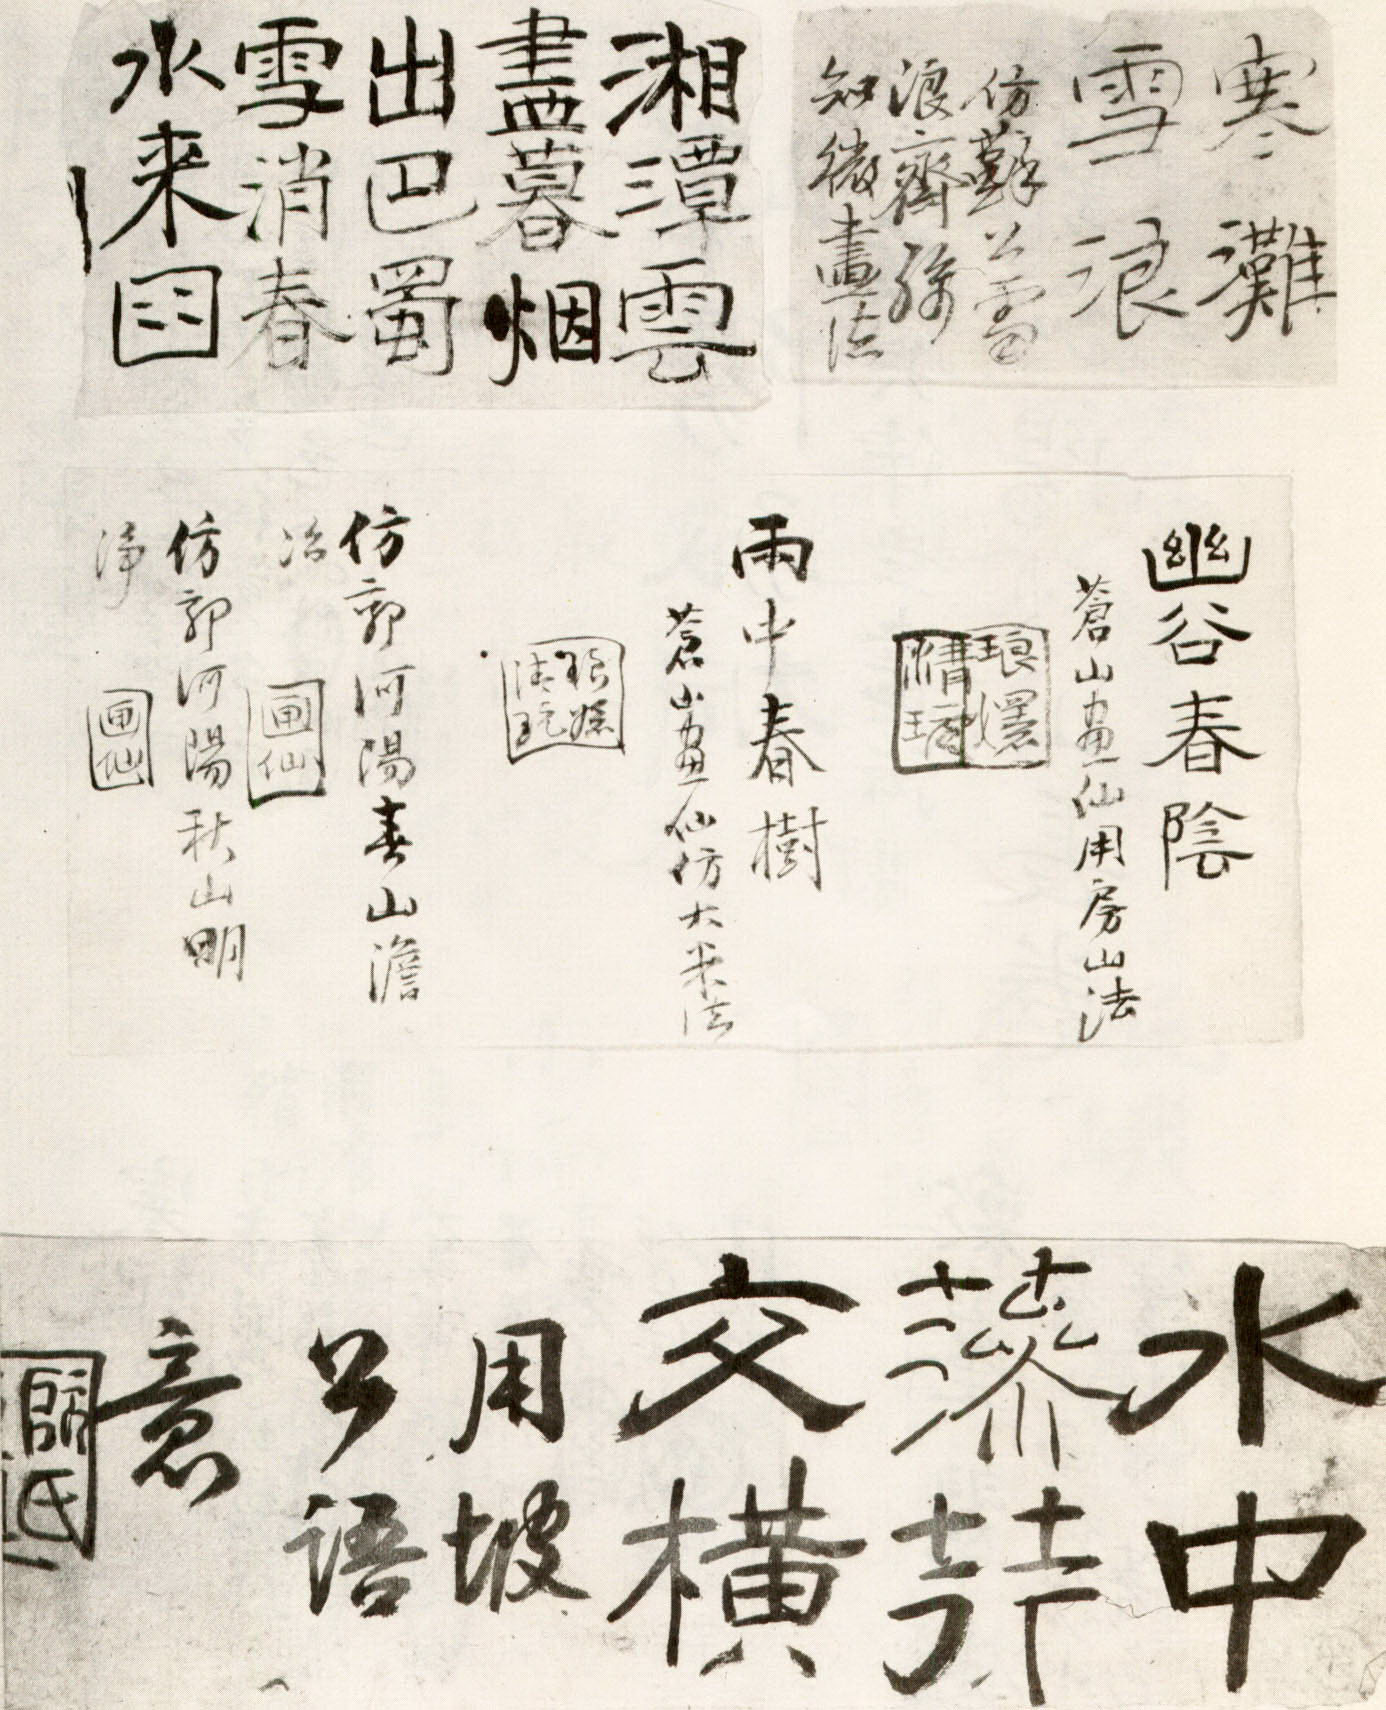 寒灘
雪浪
仿蘇公雪
浪齋孫
知微畫法
湘潭雲
盡暮烟
出巴蜀
雪消春
水来
幽谷春陰
蒼山画仙用房山法
琅嬛
清玩
雨中春樹
蒼山画仙仿大米法
仿郭河陽春山澹
冶
画仙
仿郭河陽秋山明
淨
画仙
水中
藻荇
交横
用坡
公語
意